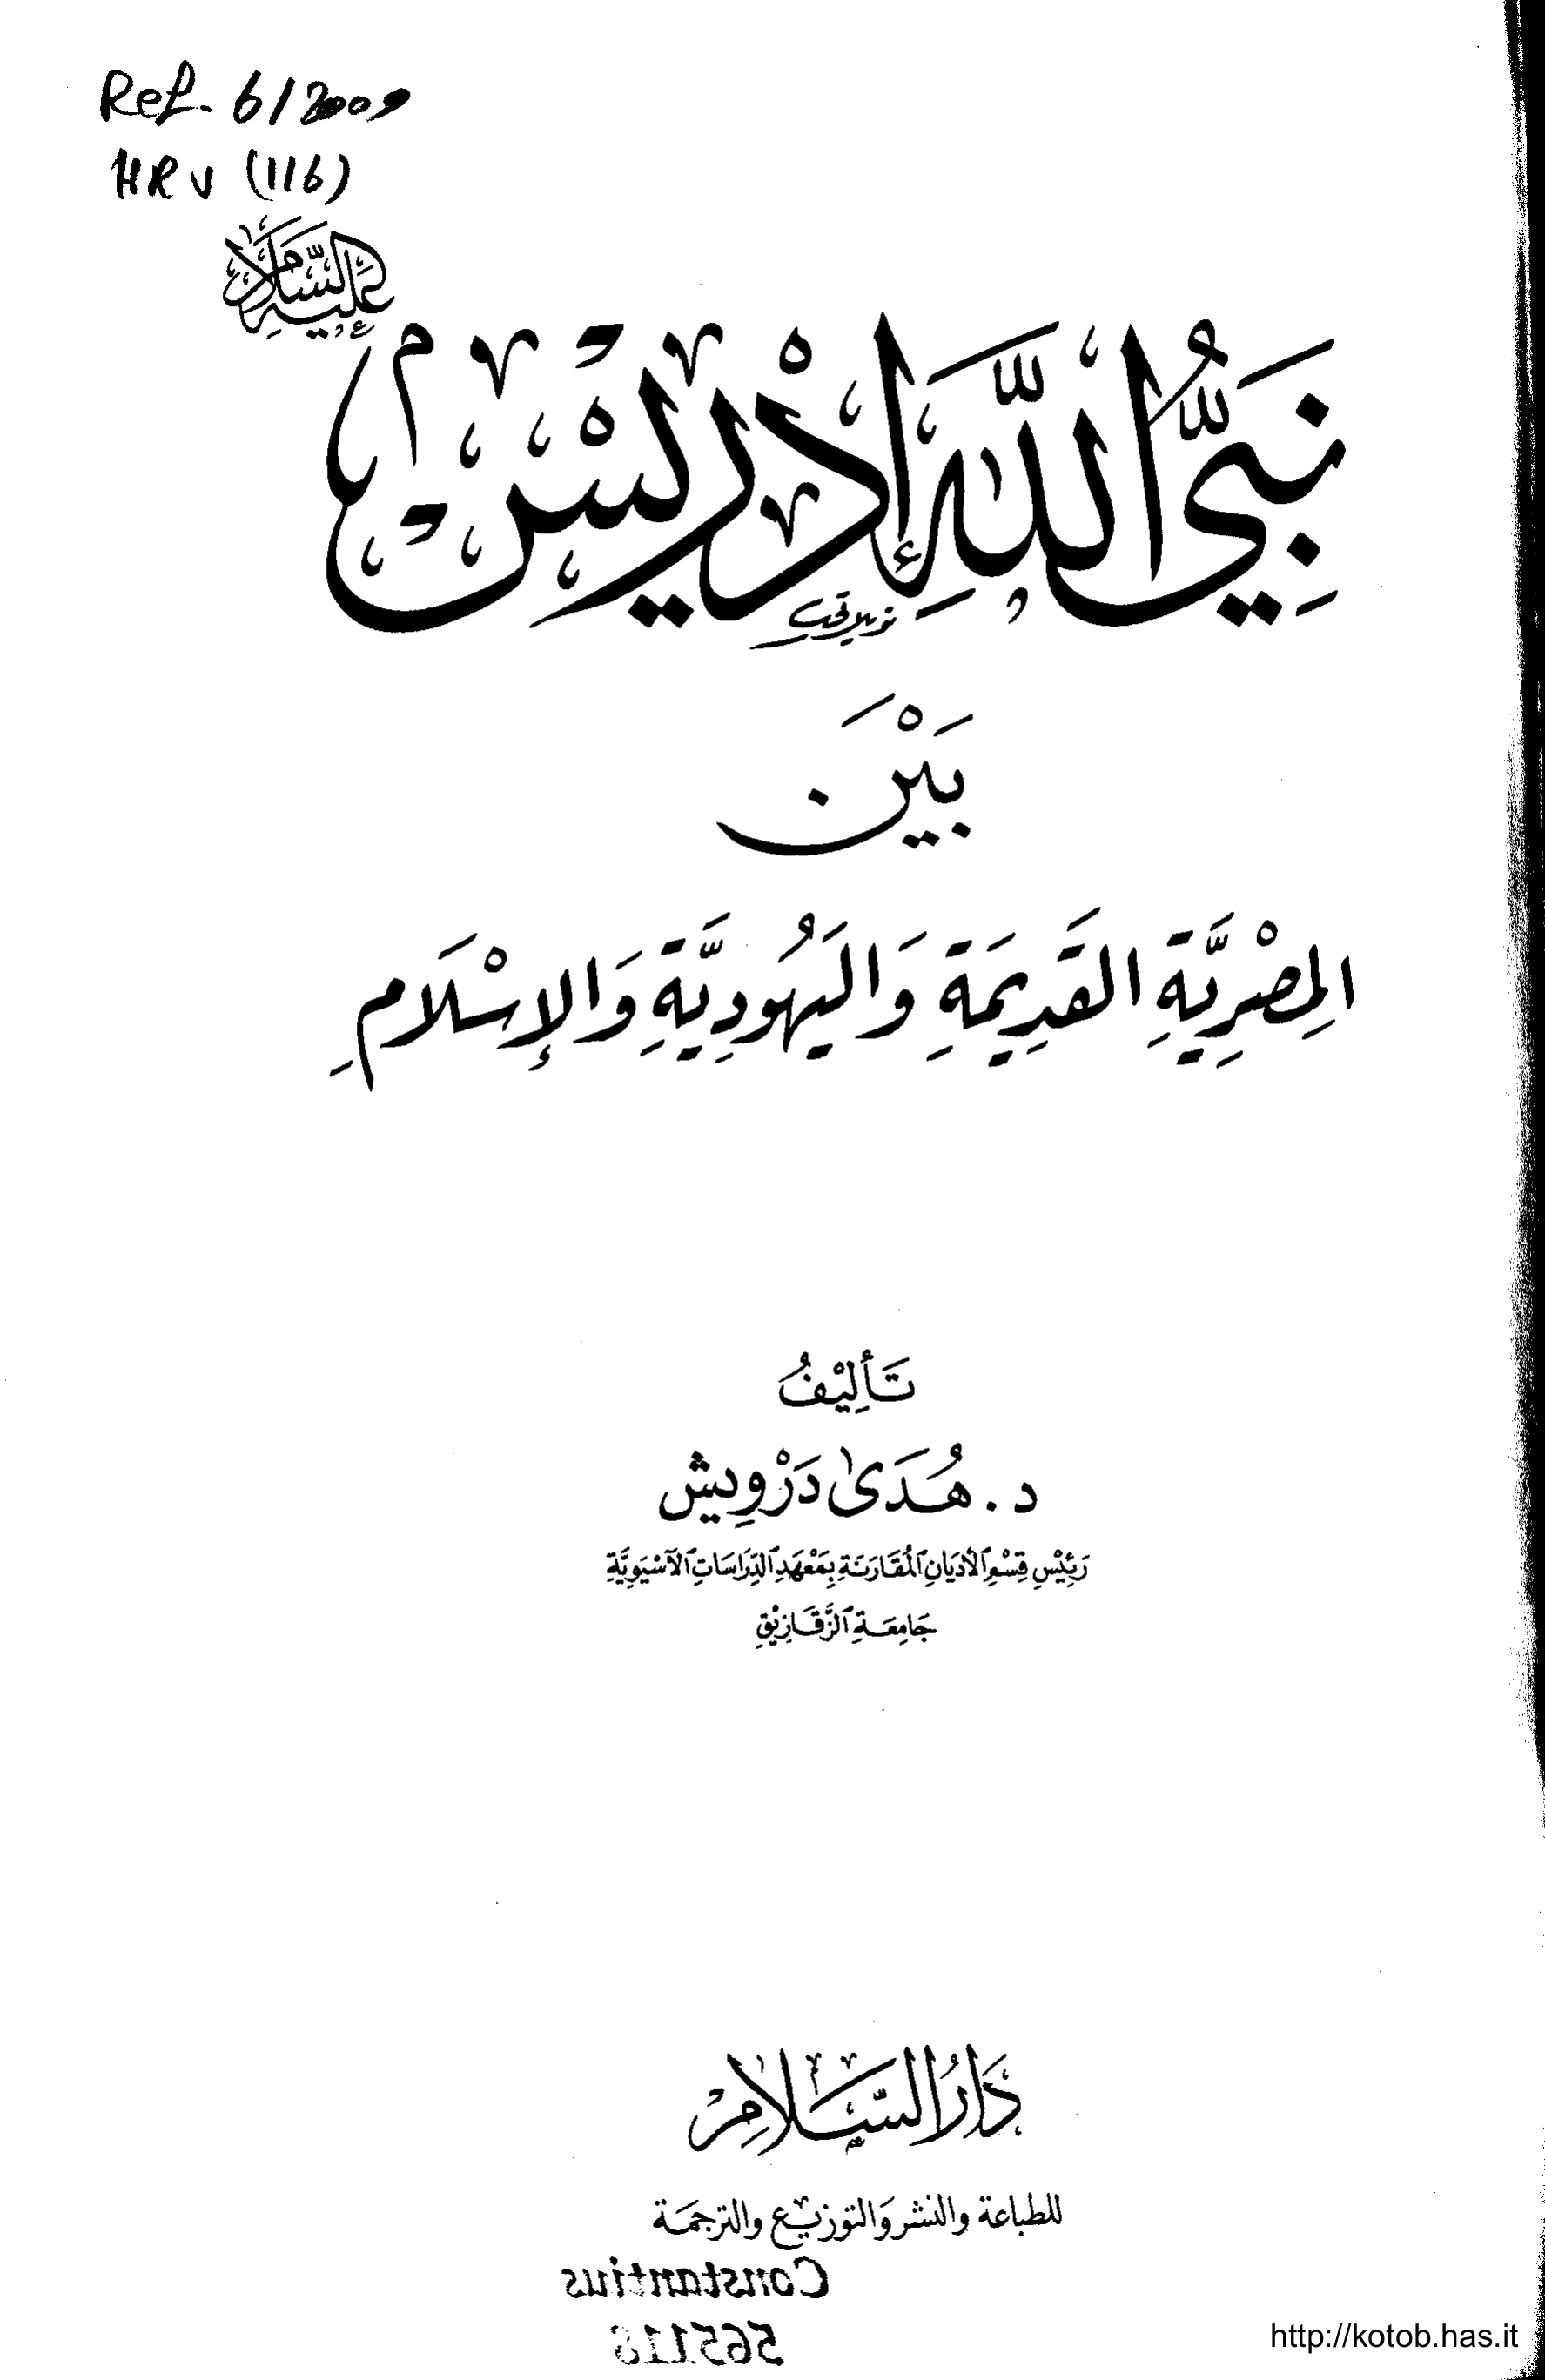 Ref. 6/2009
HRV (116)
عَلَيْهِ السَّلَام
نَبِيُّ اللَّهِ إِدْرِيسْ
بَيْنَ
المِصْرِيَّةِ القَدِيمَةِ وَاليَهُودِيَّةِ وَالإِسْلَامِ
تَأْلِيْفُ
د. هُدَى دَرْوِيش
رَئِيْسِ قِسْمِ الأَدْيَانِ المُقَارَنَةِ بِمَعْهَدِ الدِّرَاسَاتِ الآسْيَوِيَّةِ
جَامِعَةِ الزَّقَازِيْقِ
دَارُ السَّلَامِ
للطباعة والنشر وَالتوزيع والترجمَة
Constantius
565118
http://kotob.has.it